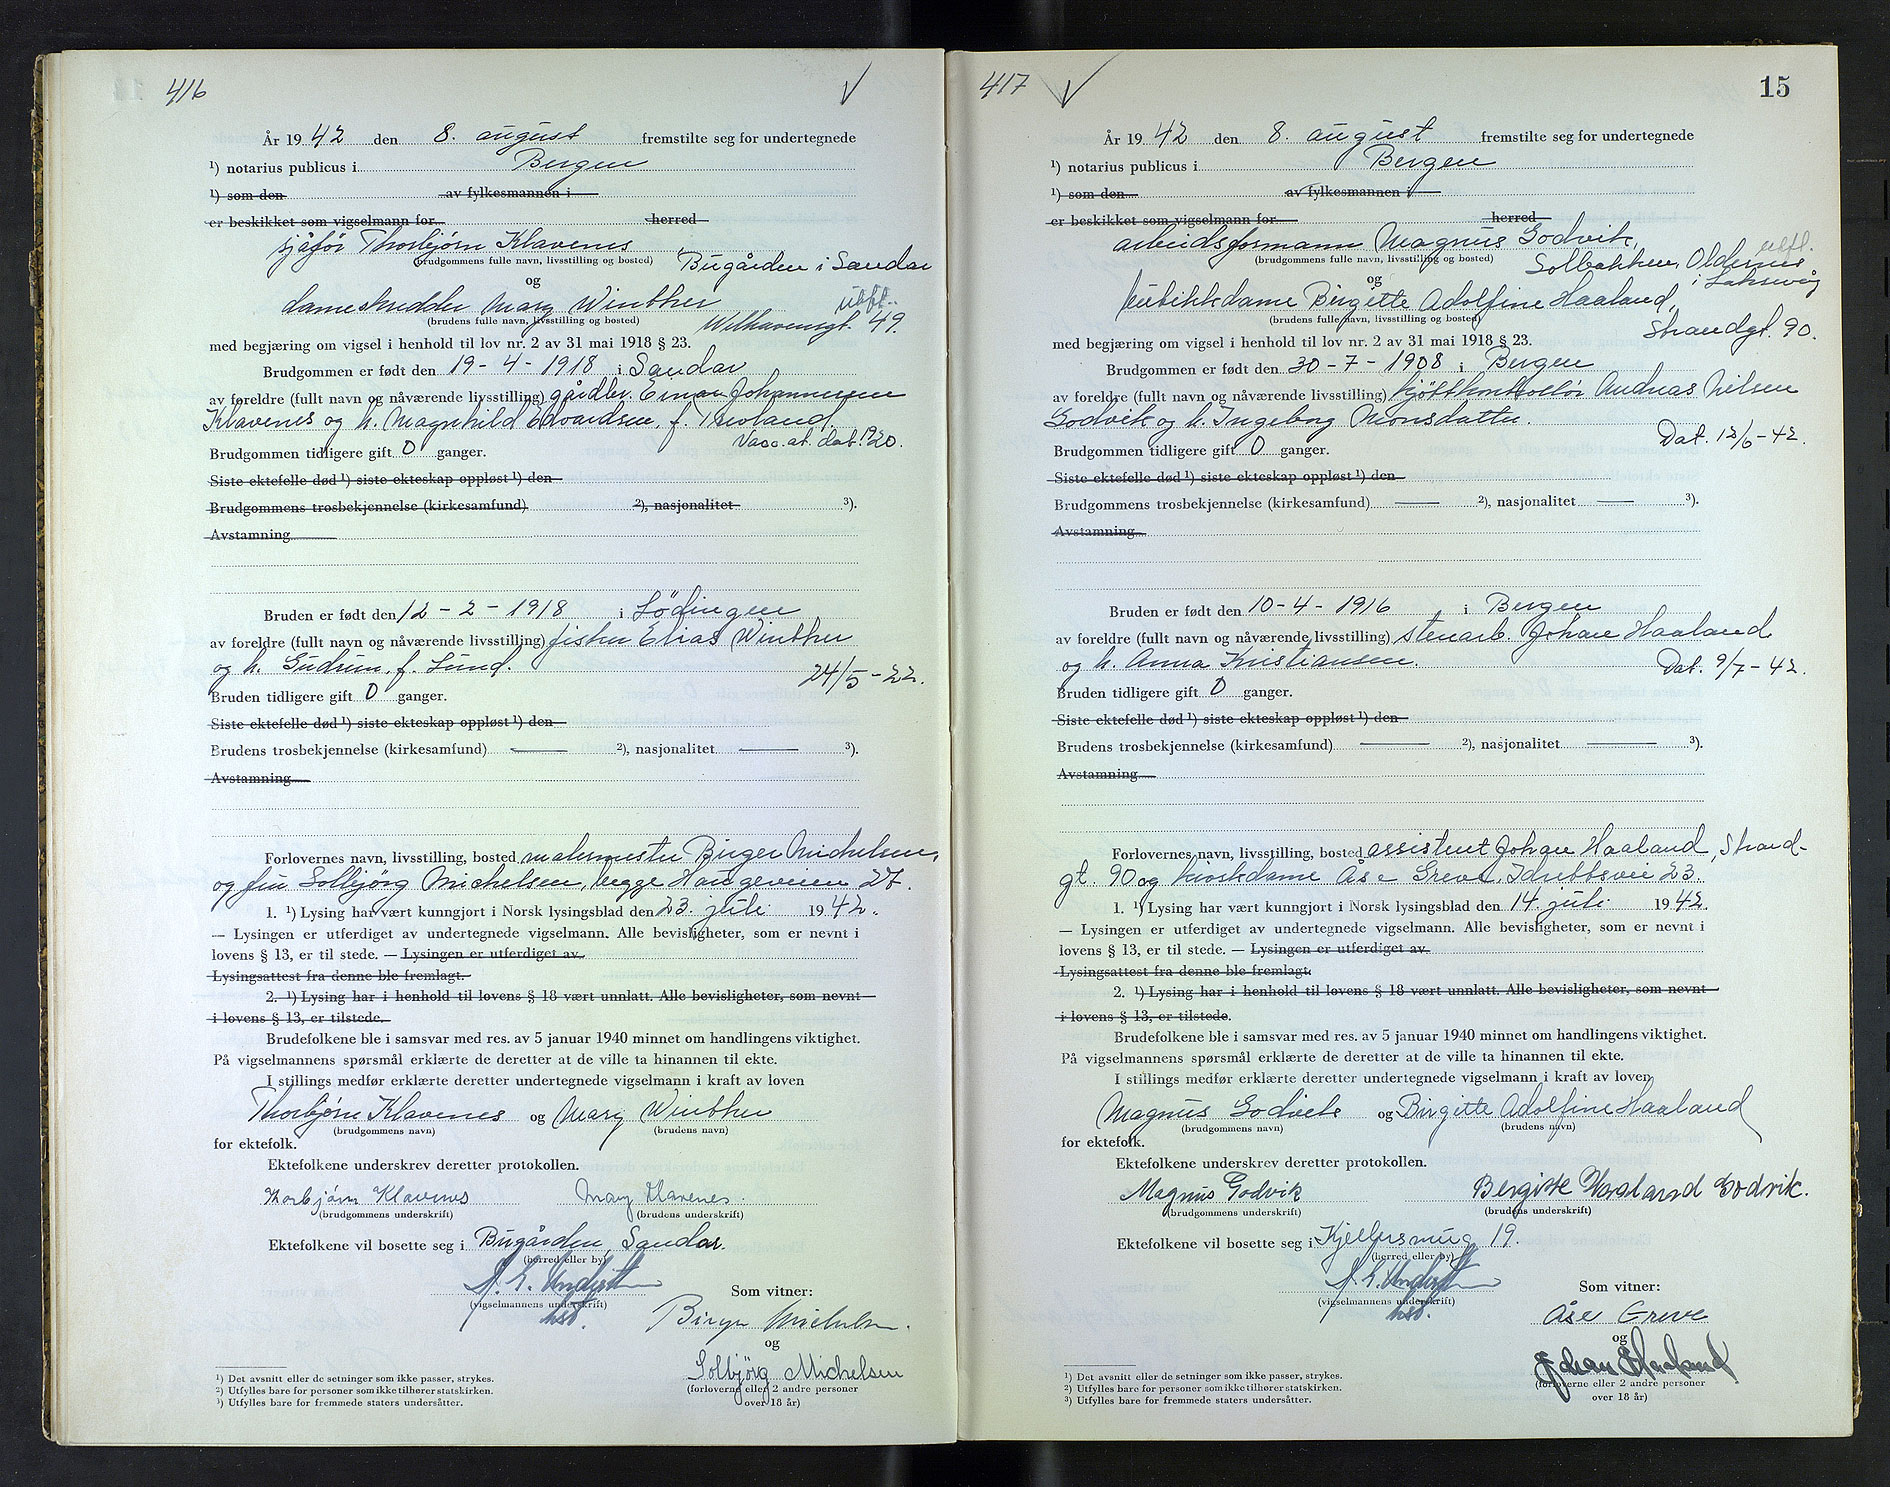 416
År 1942 den 8. august fremstilte seg for undertegnede
¹) notarius publicus i Bergen
¹) som den av fylkesmannen i
er beskikket som vigselmann for herred
sjåfør Thorbjørn Klavenes
(brudgommens fulle navn, livsstilling og bosted) Bugården i Sandar
og
dameskredder Mary Winther
(brudens fulle navn, livsstilling og bosted) Welhavensgt. 49.
med begjæring om vigsel i henhold til lov nr. 2 av 31 mai 1918 § 23.
Brudgommen er født den 19-4-1918 i Sandar
av foreldre (fullt navn og nåværende livsstilling) gårdbr. Einar Johannessen
Klavenes og h. Magnhild Edvardsen, f.
Vacc.at. dat. 1920.
Brudgommen tidligere gift 0 ganger.
Siste ektefelle død ¹) siste ekteskap oppløst ¹) den
Brudgommens trosbekjennelse (kirkesamfund) ²), nasjonalitet ³).
Avstamning
Bruden er født den 12-2-1918 i Lödingen
av foreldre (fullt navn og nåværende livsstilling) fisker Elias Winther
og h. Gudrun, f. Lund.
24/5-22.
Bruden tidligere gift 0 ganger.
Siste ektefelle død ¹) siste ekteskap oppløst ¹) den
Brudens trosbekjennelse (kirkesamfund) — ²), nasjonalitet — ³).
Avstamning
Forlovernes navn, livsstilling, bosted malermester Birger Michelsen,
og fru Solbjörg Michelsen, begge Haugeveien
1. ¹) Lysing har vært kunngjort i Norsk lysingsblad den 23. juli 1942.
— Lysingen er utferdiget av undertegnede vigselmann. Alle bevisligheter, som er nevnt i
lovens § 13, er til stede. — Lysingen er utferdiget av
Lysingsattest fra denne ble fremlagt.
2. ¹) Lysing har i henhold til lovens § 18 vært unnlatt. Alle bevisligheter, som nevnt
i lovens § 13, er tilstede.
Brudefolkene ble i samsvar med res. av 5 januar 1940 minnet om handlingens viktighet.
På vigselmannens spørsmål erklærte de deretter at de ville ta hinannen til ekte.
I stillings medfør erklærte deretter undertegnede vigselmann i kraft av loven
Thorbjørn Klavenes og Mary Winther
(brudgommens navn) (brudens navn)
for ektefolk.
Ektefolkene underskrev deretter protokollen.
Thorbjørn Klavenes Mary Klavenes.
(brudgommens underskrift) (brudens underskrift)
Ektefolkene vil bosette seg i Bugården, Sandar.
(herred eller by)
(vigselmannens underskrift)
Som vitner:
Birger Michelsen.
og
Solbjörg Michelsen
(forloverne eller 2 andre personer
over 18 år)
¹) Det avsnitt eller de setninger som ikke passer, strykes.
²) Utfylles bare for personer som ikke tilhører statskirken.
³) Utfylles bare for fremmede staters undersåtter.
417
15
År 1942 den 8. august fremstilte seg for undertegnede
¹) notarius publicus i Bergen
¹) som den av fylkesmannen i
er beskikket som vigselmann for herred
arbeidsformann Magnus Godvik,
(brudgommens fulle navn, livsstilling og bosted) Solbakken, Oldernes
i Laksevåg
og
butikkdame Birgitte Adolfine Haaland,
(brudens fulle navn, livsstilling og bosted) Strandgt. 90.
med begjæring om vigsel i henhold til lov nr. 2 av 31 mai 1918 § 23.
Brudgommen er født den 30-7-1908 i Bergen
av foreldre (fullt navn og nåværende livsstilling) kjøttkontrollør Andreas Nilsen
Godvik og h. Ingeborg Monsdatter.
Dat. 12/6-42.
Brudgommen tidligere gift 0 ganger.
Siste ektefelle død ¹) siste ekteskap oppløst ¹) den
Brudgommens trosbekjennelse (kirkesamfund) — ²), nasjonalitet — ³).
Avstamning
Bruden er født den 10-4-1916 i Bergen
av foreldre (fullt navn og nåværende livsstilling) stenarb. Johan Haaland
og h. Anna Kristiansen.
Dat. 9/7-42.
Bruden tidligere gift 0 ganger.
Siste ektefelle død ¹) siste ekteskap oppløst ¹) den
Brudens trosbekjennelse (kirkesamfund) — ²), nasjonalitet — ³).
Avstamning
Forlovernes navn, livsstilling, bosted assistent Johan Haaland, Strand-
gt. 90 og kioskdame Åse Greve, Idrettsvei 23.
1. ¹) Lysing har vært kunngjort i Norsk lysingsblad den 14. juli 1942.
— Lysingen er utferdiget av undertegnede vigselmann. Alle bevisligheter, som er nevnt i
lovens § 13, er til stede. — Lysingen er utferdiget av
Lysingsattest fra denne ble fremlagt.
2. ¹) Lysing har i henhold til lovens § 18 vært unnlatt. Alle bevisligheter, som nevnt
i lovens § 13, er tilstede.
Brudefolkene ble i samsvar med res. av 5 januar 1940 minnet om handlingens viktighet.
På vigselmannens spørsmål erklærte de deretter at de ville ta hinannen til ekte.
I stillings medfør erklærte deretter undertegnede vigselmann i kraft av loven
Magnus Godvik og Birgitte Adolfine Haaland
(brudgommens navn) (brudens navn)
for ektefolk.
Ektefolkene underskrev deretter protokollen.
Magnus Godvik Bergitte Haaland Godvik.
(brudgommens underskrift) (brudens underskrift)
Ektefolkene vil bosette seg i Kjellersmug 19.
(herred eller by)
(vigselmannens underskrift)
Som vitner:
Åse Greve
og
Johan Haaland
(forloverne eller 2 andre personer
over 18 år)
¹) Det avsnitt eller de setninger som ikke passer, strykes.
²) Utfylles bare for personer som ikke tilhører statskirken.
³) Utfylles bare for fremmede staters undersåtter.